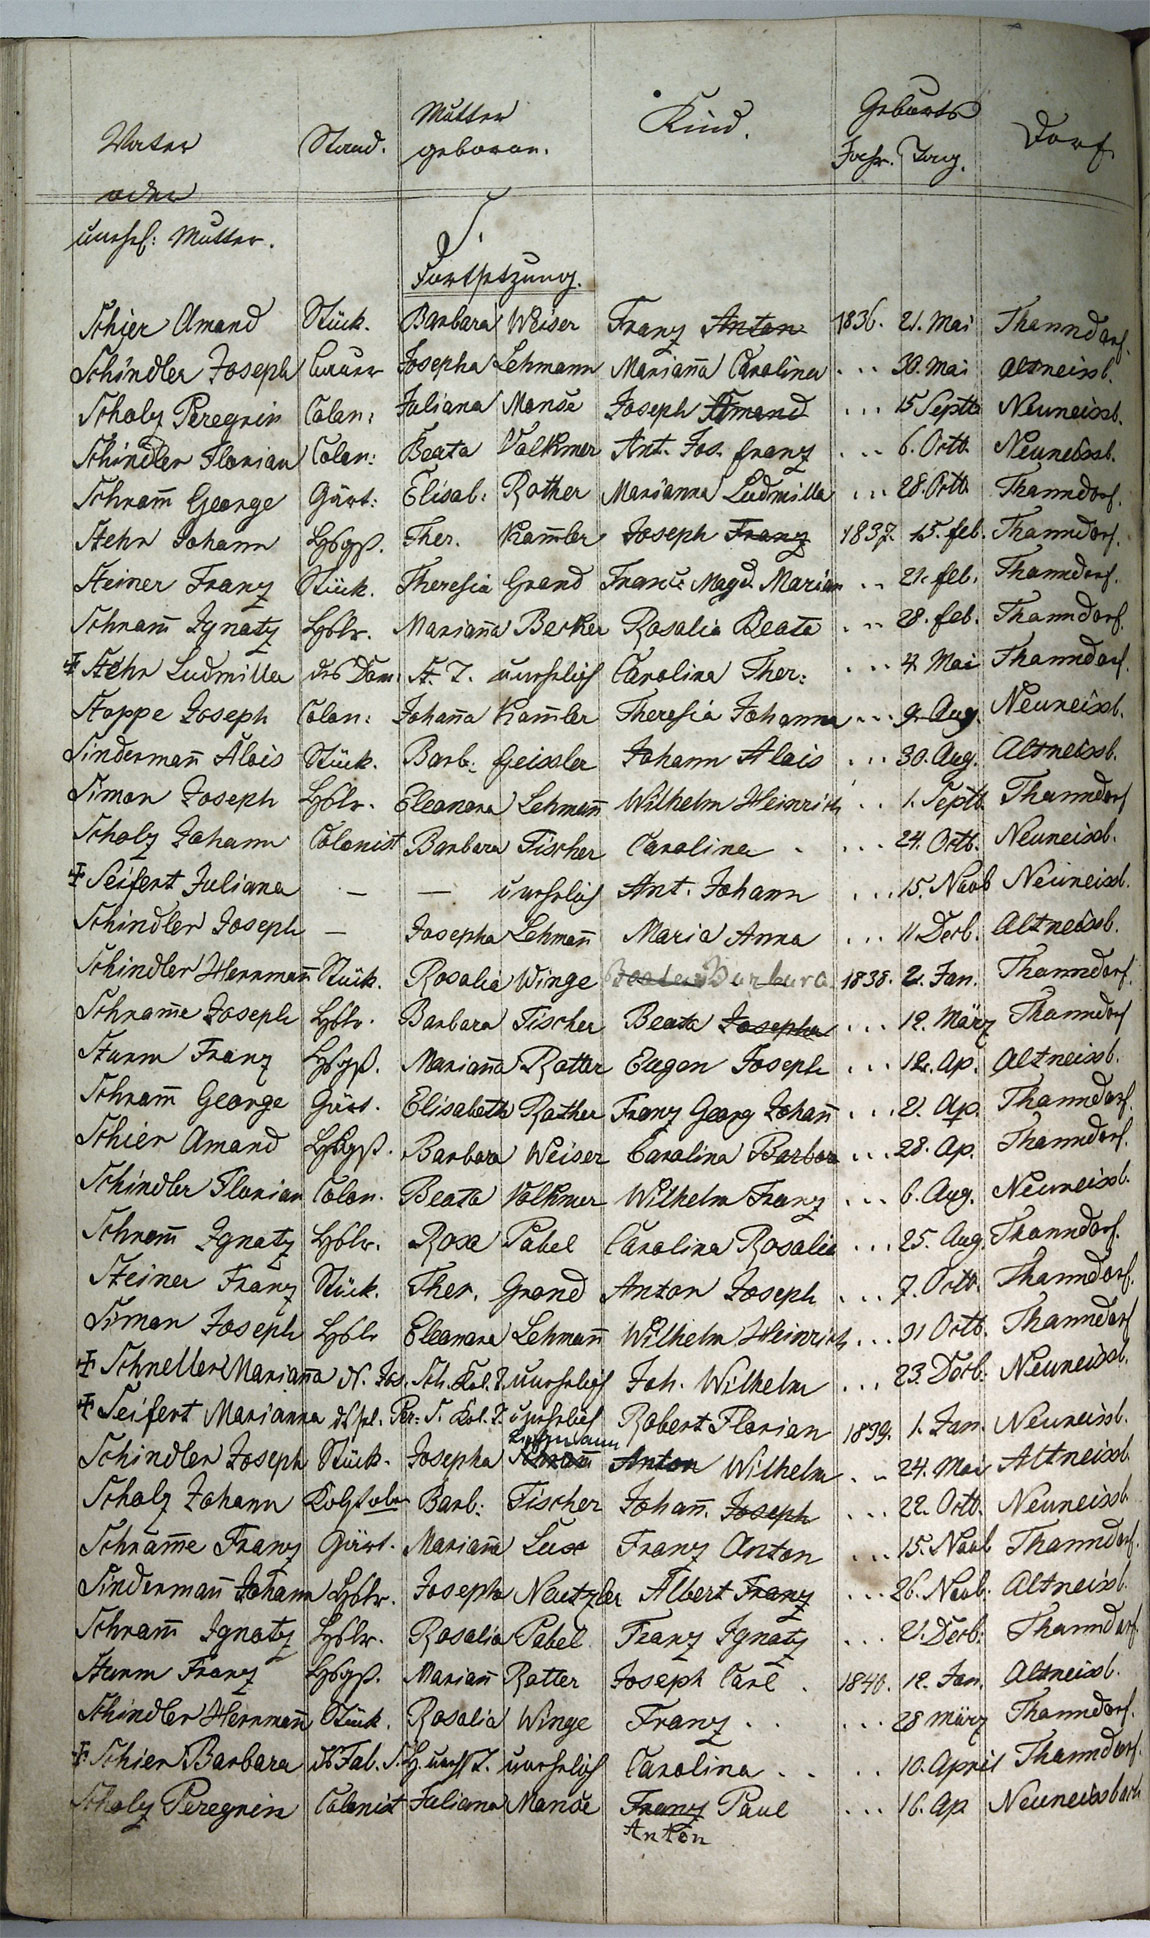 Vater Stand. Mutter Kind. Geburts Dorf.
oder geboren. Jahr. Tag.
unehel: Mutter.
S.
Fortsetzung.
Schier Amand Stück. Barbara Weiser Franz Anton 1836. 21. Mai Thanndorf.
Schindler Joseph Bauer Josepha Lehmann Marianna Carolina ... 30. Mai Altneissb.
Scholz Peregrin Colon: Juliana Monse Joseph Amand ... 15 Septb Neuneissb.
Schindler Florian Colon: Beata Volkmer Ant. Jos. Franz ... 6. Octb. Neuneissb.
Schram̄ George Gärt: Elisab: Rother Marianna Ludmilla ... 28. Octb. Thanndorf.
Stehr Johann Hsbgß. Ther. Kam̄ler Joseph Franz 1837. 15. feb. Thanndorf.
Steiner Franz Stück. Theresia Grond Franc. Magd. Marian .. 21. feb. Thanndorf.
Schram̄ Ignatz Hslr. Marian̄a Becker Rosalia Beata ... 28. feb. Thanndorf.
Stehr Ludmilla des Dom. St. T. unehelich Carolina Ther: ... 4. Mai Thanndorf.
Stoppe Joseph Colon: Johan̄a Kam̄ler Theresia Johanna ... 9. Aug. Neuneissb.
Sinderman̄ Alois Stück. Barb: Geissler Johann Alois ... 30. Aug. Altneissb.
Simon Joseph Hslr. Eleonora Lehman̄ Wilhelm Heinrich ... 1. Septb. Thanndorf
Scholz Johann Colonist Barbara Fischer Carolina . ... 24. Octb. Neuneissb.
Seifert Juliana — — unehelich Ant. Johann ... 15. Novb Neuneissb.
Schindler Joseph — Josepha Lehman̄ Maria Anna ... 11 Decb. Altneissb.
Schindler Herrman̄ Stück. Rosalia Winge Barbara 1838. 2. Jan. Thanndorf.
Schram̄e Joseph Hslr. Barbara Fischer Beata Josepha ... 12. März Thanndorf
Sturm Franz Hsbgß. Marian̄a Rotter Eugen Joseph ... 12. Ap. Altneissb.
Schram̄ George Gärt. Elisabeth Rother Franz Georg Johan̄ ... 21. Ap. Thanndorf.
Schier Amand Hsbgß. Barbara Weiser Carolina Barbara ... 28. Ap. Thanndorf.
Schindler Florian Colon. Beata Volkmer Wilhelm Franz ... 6. Aug. Neuneissb.
Schram̄ Ignatz Hslr. Rosa Pabel Carolina Rosalia ... 25. Aug. Thanndorf.
Steiner Franz Stück. Ther. Grond Anton Joseph ... 7. Octb. Thanndorf.
Simon Joseph Hslr Eleonora Lehman̄ Wilhelm Heinrich ... 31 Octb. Thanndorf
Schneller Marian̄a d. Jos. Sch. Kol. T. unehelich Joh. Wilhelm ... 23. Decb: Neuneissb.
Seifert Marianna Per: S. Kol. T. unehelich Robert Florian 1839. 1. Jan. Neuneissb.
Lehmann
Schindler Joseph Stück. Josepha Anton Wilhelm .. 24. Mai Altneissb
Scholz Johann Barb: Fischer Johan̄. Joseph ... 22. Octb. Neuneissb.
Schram̄e Franz Gärt. Marian̄a Lux Franz Anton ... 15. Novb Thanndorf.
Sinderman̄ Johann Hslr. Josepha Neutzler Albert Franz ... 26. Novb. Altneissb.
Schram̄ Ignatz Hslr. Rosalia Pabel Franz Ignatz ... 2. Decb: Thanndorf.
Sturm Franz Hsbgß. Marian̄ Rotter Joseph Carl . 1840. 12. Jan. Altneissb.
Schindler Herrman̄ Stück. Rosalia Winge Franz . . ... 28 März Thanndorf.
Schier Barbara unehelich Carolina . . . . 10. April Thanndorf.
Scholz Peregrin Colonist Juliana Monse Franz Paul ... 16. Ap Neuneissbach
Anton